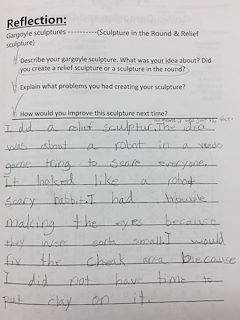 Reflection:
Gargoyle sculptures ----------(Sculpture in the Round & Relief
sculpture)
Describe your gargoyle sculpture. What was your idea about? Did
you create a relief sculpture or a sculpture in the round?
Explain what problems you had creating your sculpture?
How would you improve this sculpture next time?
I did a relief sculptur. The idea
was about a robot in a
game tring to scare everyone.
It looked like a robot
scary rabbit. I had trouble
making the eyes because
they were sorta small. I would
fix the cheak area because
I did not have time to
put clay on it.